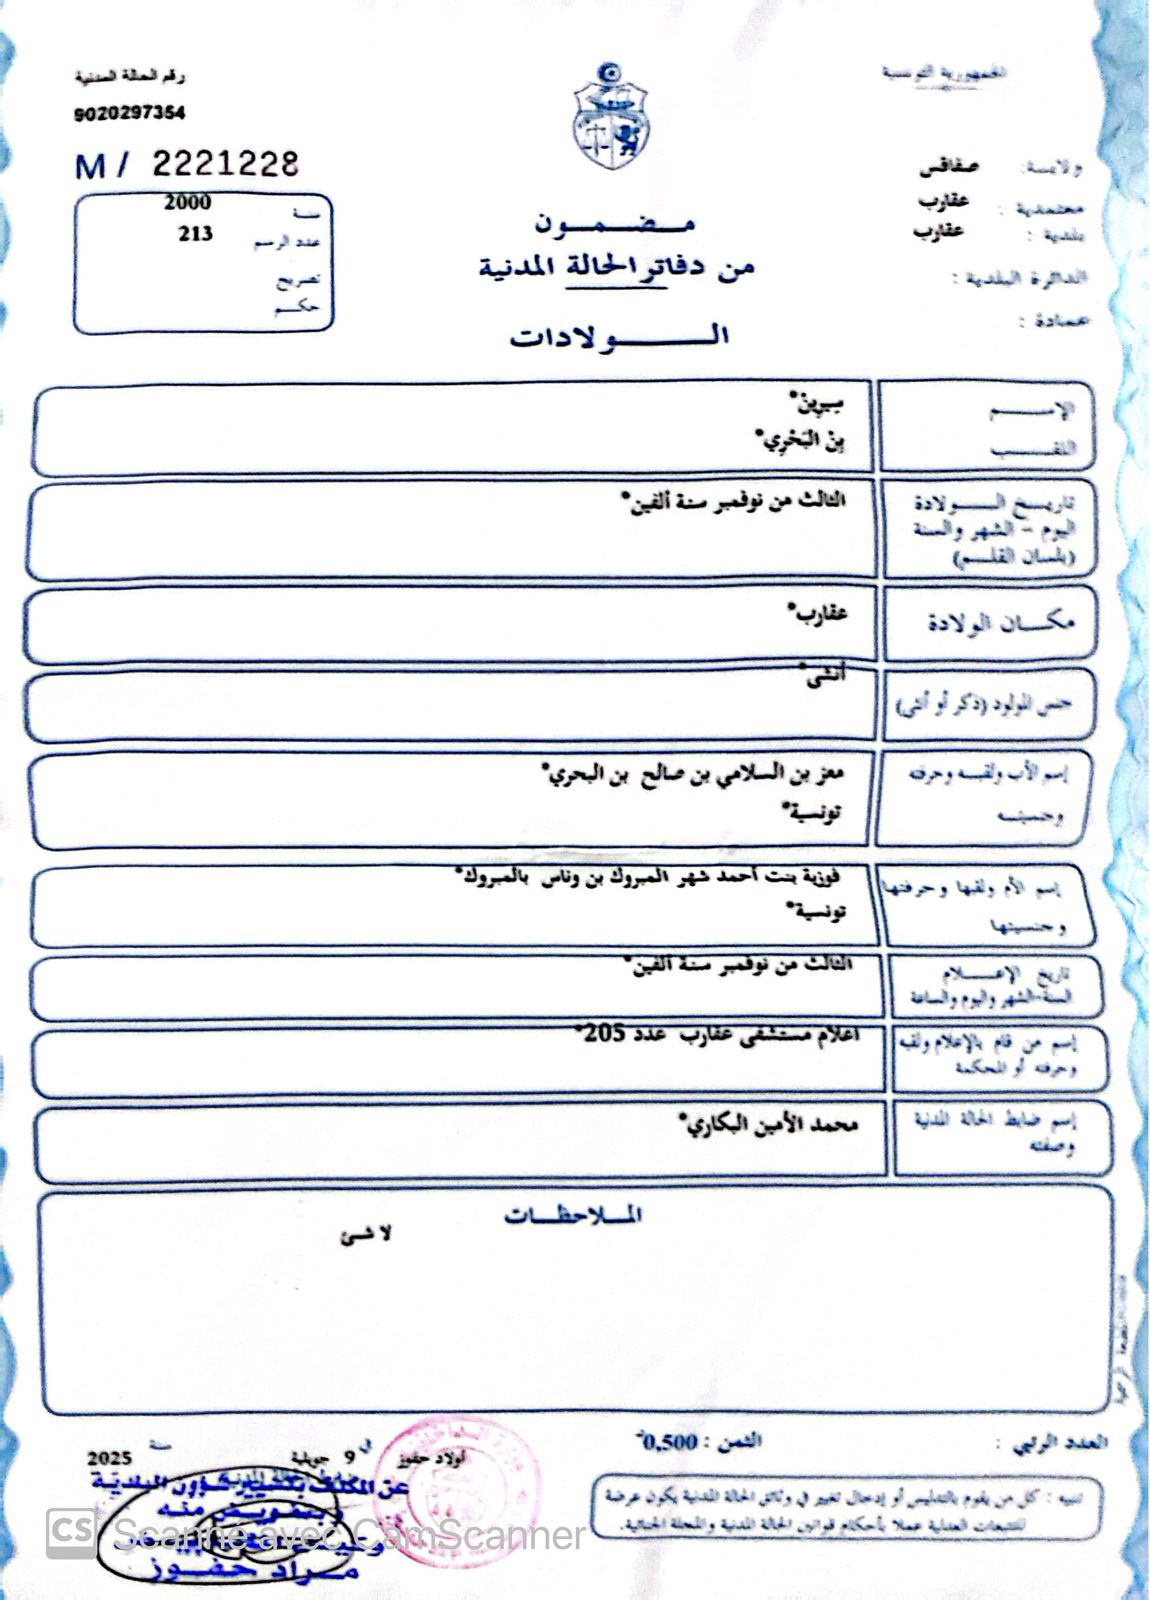 الجمهورية التونسية
رقم الحالة المدنية
9020297354
M / 2221228
ولايـة: صفاقس
معتمدية : عقارب
بلدية : عقارب
الدائرة البلدية :
عمادة :
سنة 2000
عدد الرسم 213
تصريح
حكم
مضمون
من دفاتر الحالة المدنية
الولادات
الإسم سِيرِينْ*
اللقب بِنْ البَحْرِي*
تاريخ الولادة الثالث من نوفمبر سنة ألفين*
اليوم - الشهر والسنة
(بلسان القلم)
مكان الولادة عقارب*
جنس المولود (ذكر أو أنثى) أنثى*
إسم الأب ولقبه وحرفته معز بن السلامي بن صالح بن البحري*
وجنسيته تونسية*
إسم الأم ولقبها وحرفتها فوزية بنت أحمد شهر المبروك بن وناس بالمبروك*
وجنسيتها تونسية*
تاريخ الإعلام الثالث من نوفمبر سنة ألفين*
السنة-الشهر واليوم والساعة
إسم من قام بالإعلام ولقبه اعلام مستشفى عقارب عدد 205*
وحرفته أو المحكمة
إسم ضابط الحالة المدنية محمد الأمين البكاري*
وصفته
الملاحظات
لا شئ
العدد الرتبي :
الثمن : 0,500د
أولاد حفوز في 9 جويلية سنة 2025
عن المكلف بتسيير شؤون البلدية
وبتفويض منه
مراد حفوز
تنبيه : كل من يقوم بالتدليس أو إدخال تغيير في وثائق الحالة المدنية يكون عرضة
للتتبعات العدلية عملا بأحكام قوانين الحالة المدنية والمجلة الجنائية.
CS Scanné avec CamScanner